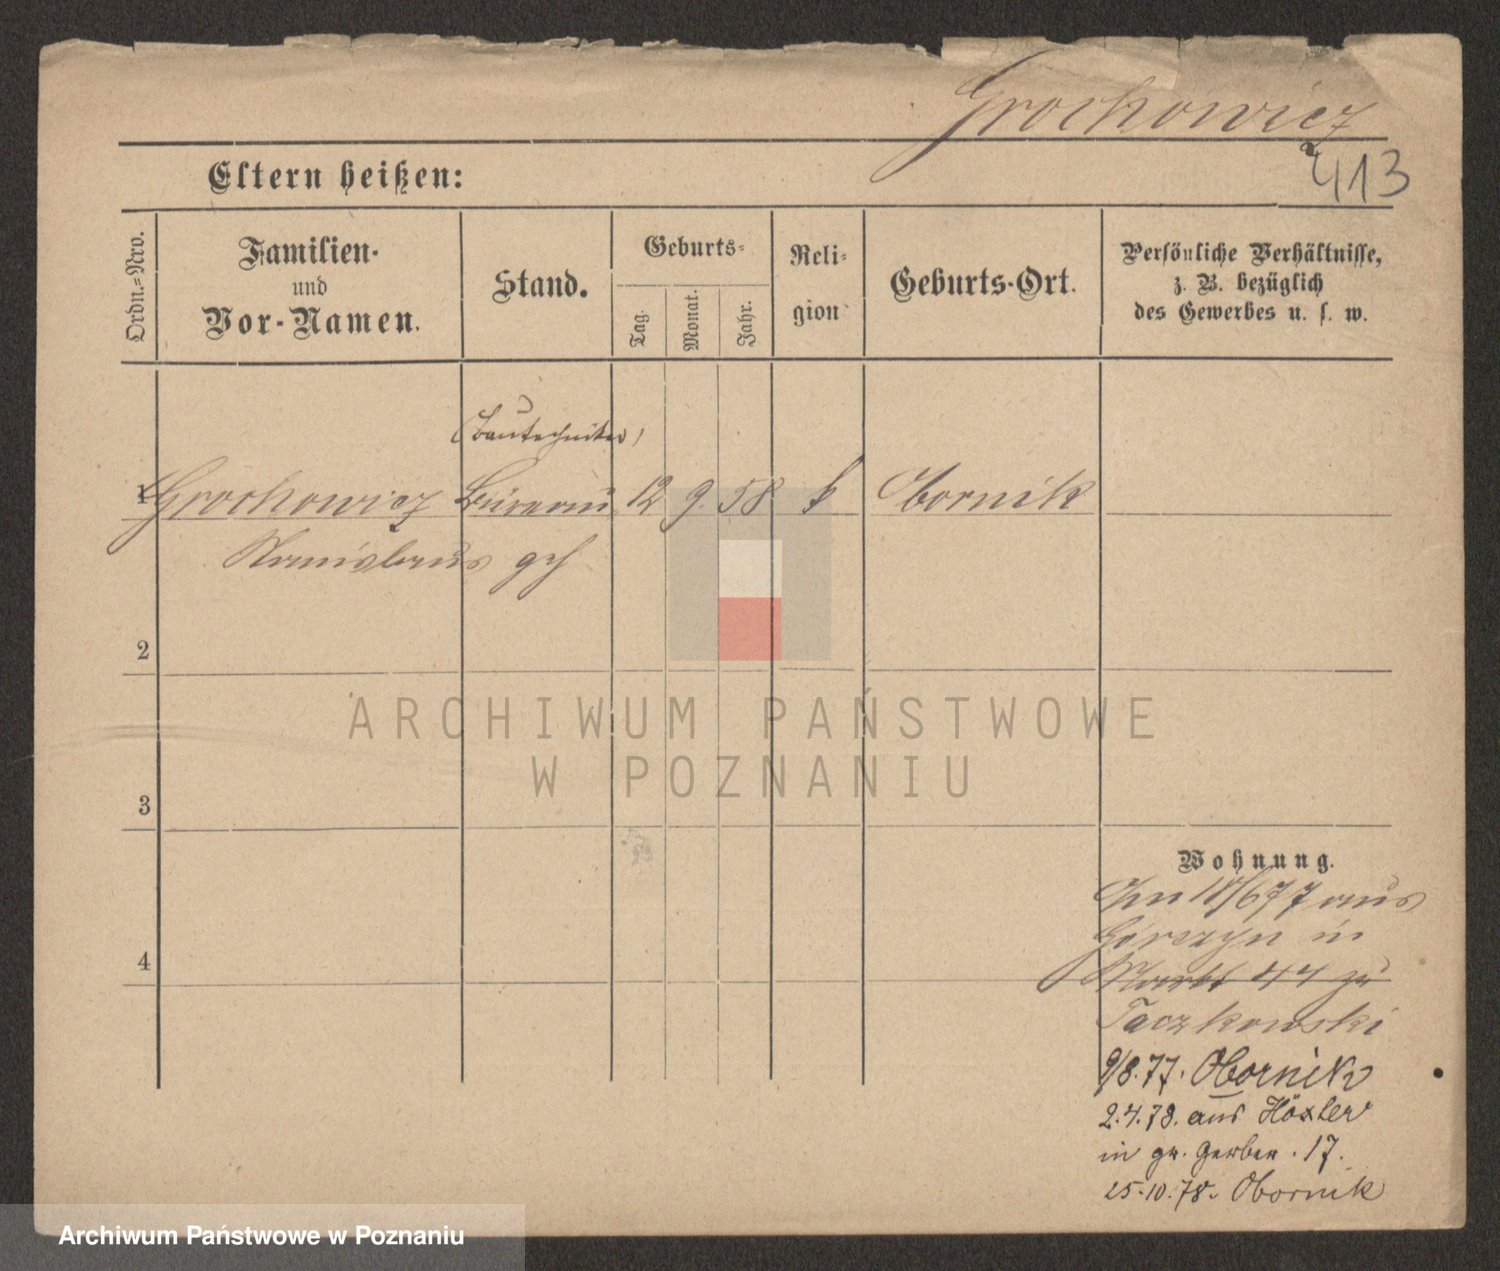 Grochowicz
413
Eltern heißen:
Ordn.-Nro.
Familien-
und
Vor-Namen.
Stand.
Geburts-
Tag.
Monat.
Jahr.
Reli-
gion
Geburts-Ort.
Persönliche Verhältnisse,
z. B. bezüglich
des Gewerbes u. s. w.
(Bautechniker)
1 Grochowicz Büreau 12 9. 58 k Obornik
Stanislaus geh
2
ARCHIWUM PAŃSTWOWE
W POZNANIU
3
Wohnung.
6/77 aus
Górczyn in
4
Markt 44 zu
Taczkowski
9/8.77. Obornik
2.4.78. aus Höxter
in gr. Gerber. 17.
25.10.78. Obornik
Archiwum Państwowe w Poznaniu